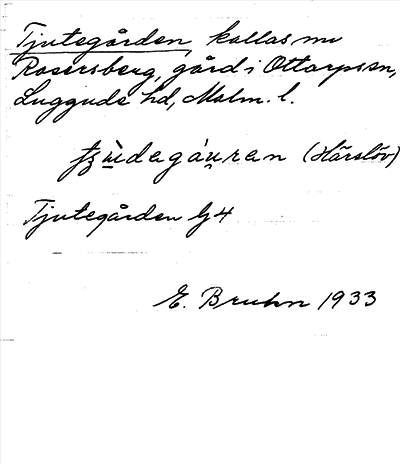 Tjutegården, kallas nu
Rosersberg, gård i Ottarpssn,
Luggude hd, Malm. l.
tjùdagáuran (Härslöv)
Tjutegården G4
E. Bruhn 1933